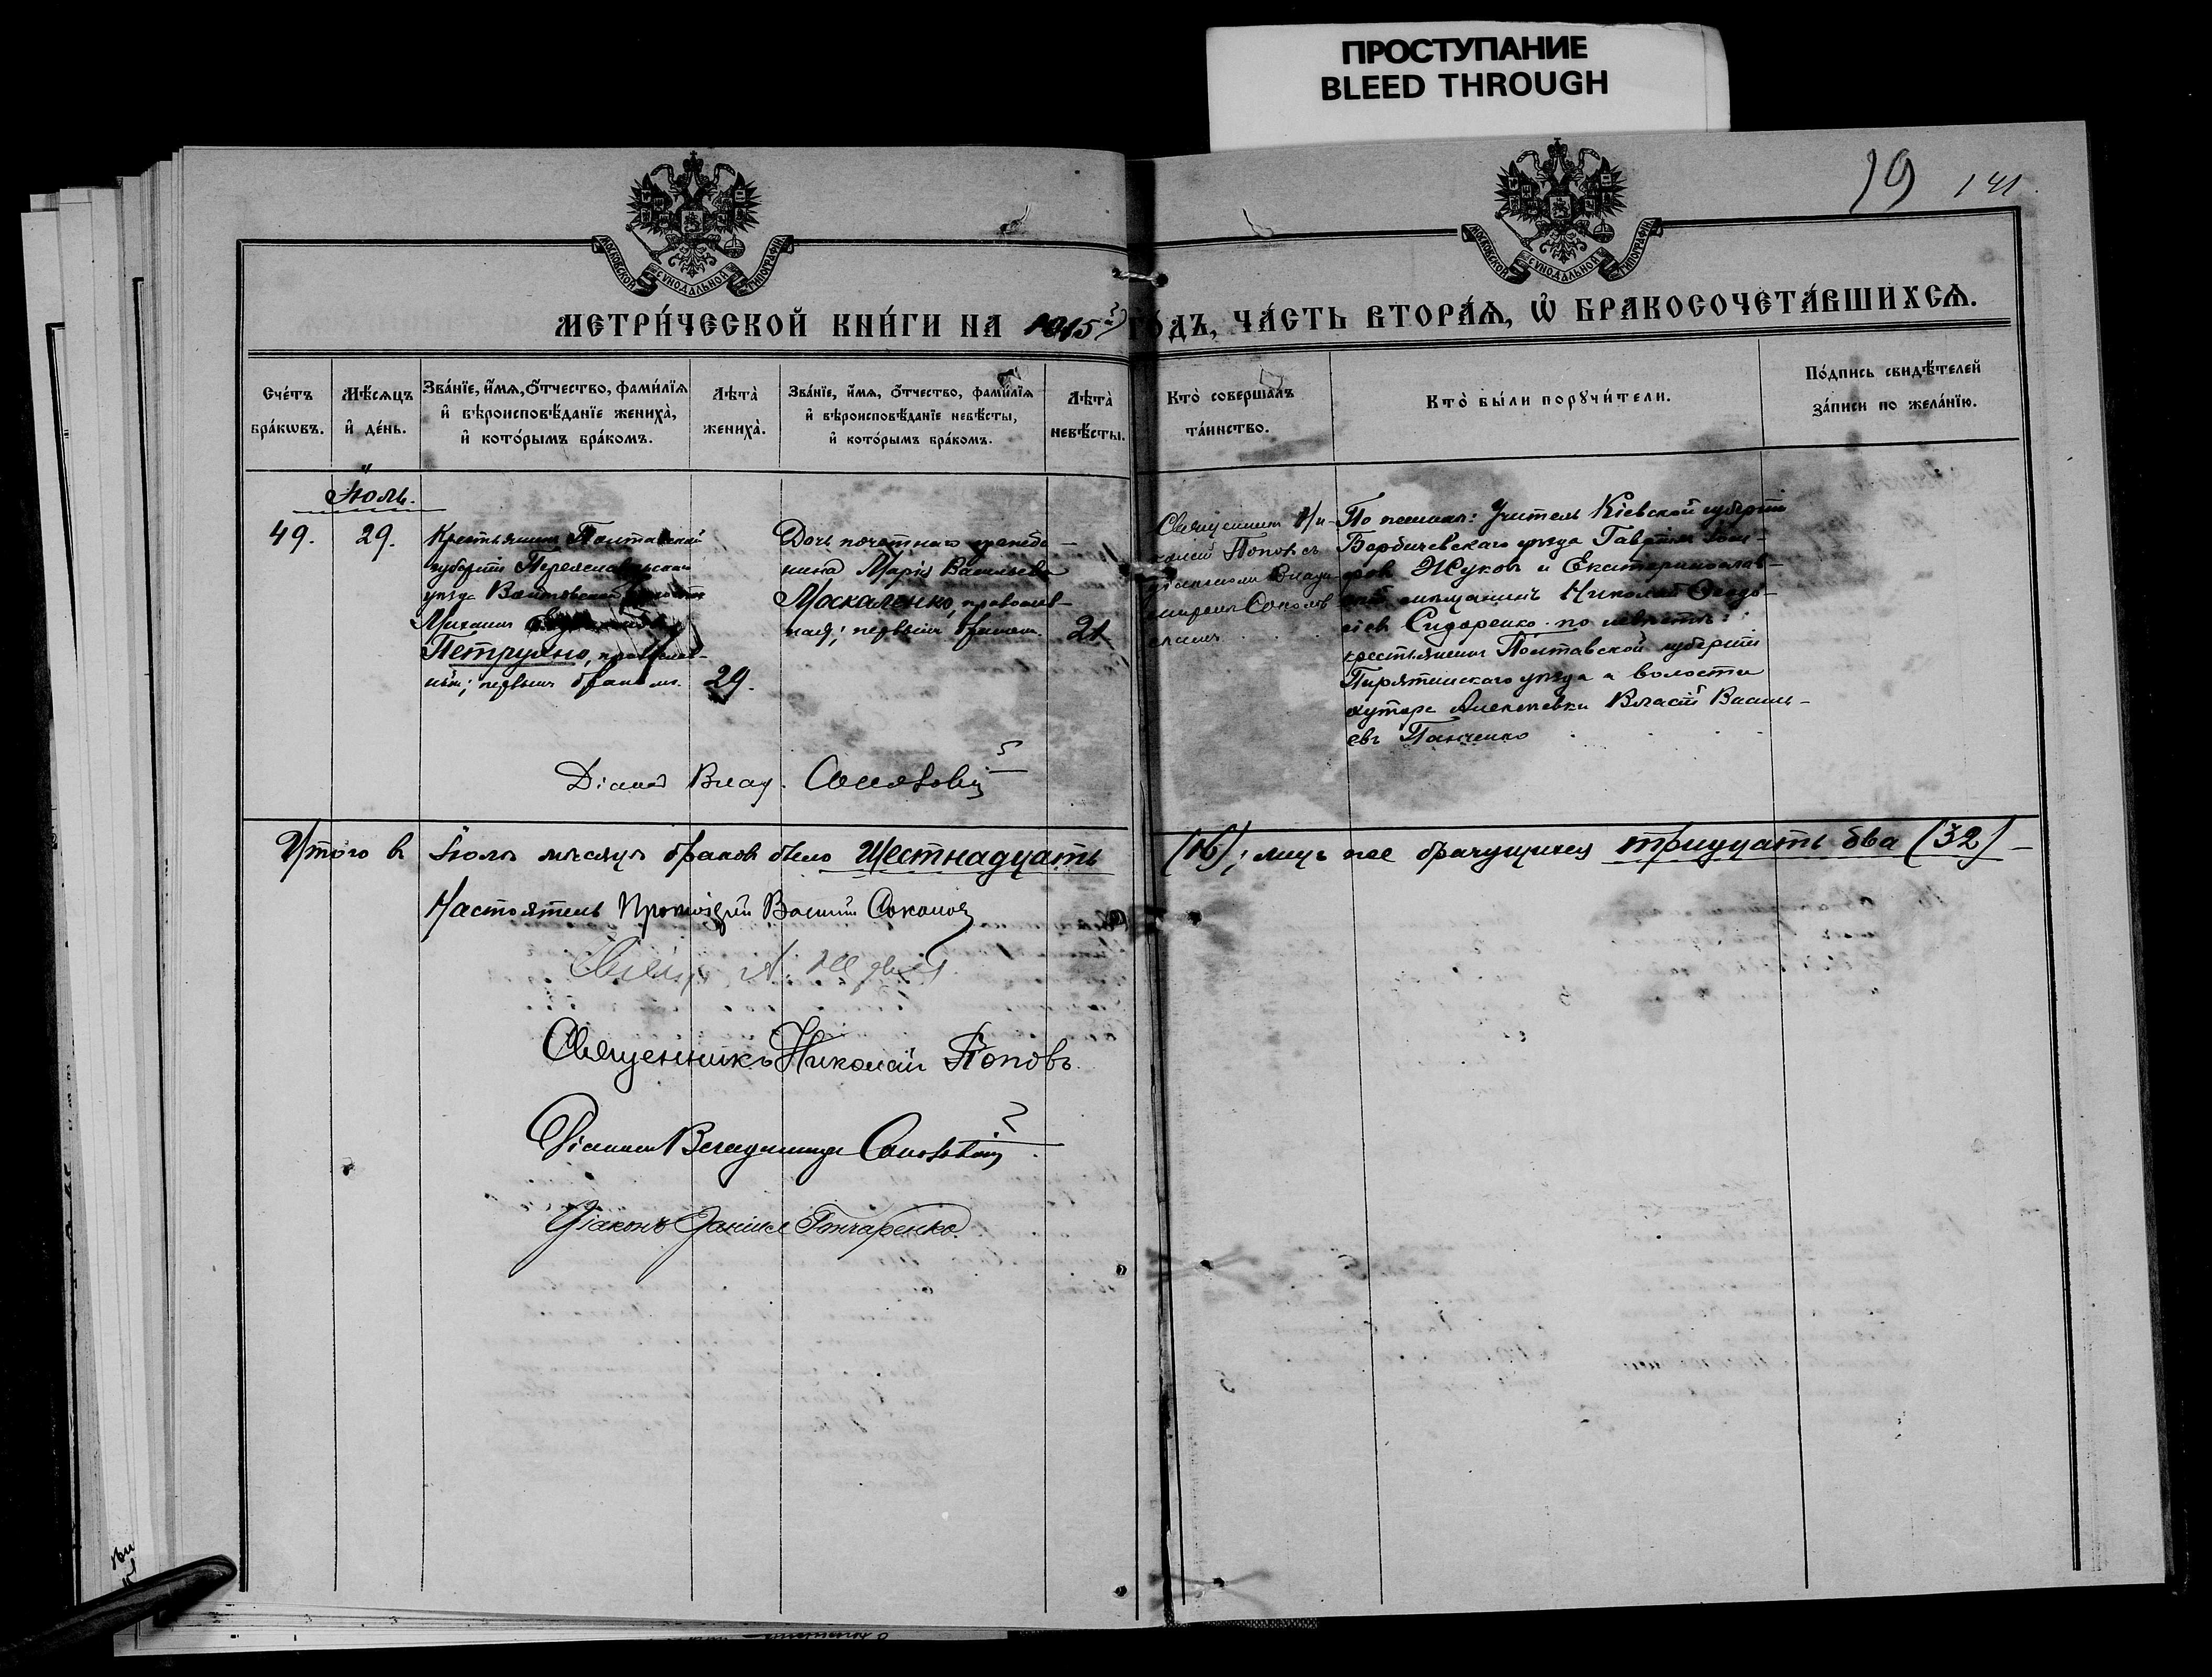 ПРОСТУПАНИЕ
BLEED THROUGH
19 141
МОСКОВСКОЙ СѴНОДАЛЬНОЙ ТИПОГРАФІИ
МОСКОВСКОЙ СѴНОДАЛЬНОЙ ТИПОГРАФІИ
МЕТРИ́ЧЕСКОЙ КНИ́ГИ НА 1915 ГО́ДЪ, ЧА́СТЬ ВТОРА́Ѧ, Ѿ БРАКОСОЧЕТА́ВШИХСѦ.
Сче́тъ бра́кѡвъ.
Мѣ́сѧцъ и҆ де́нь.
Зва́нїе, и҆́мѧ, ѻ҆́тчество, фами́лїѧ
и҆ вѣроисповѣ́данїе жениха̀,
и҆ кото́рымъ бра́комъ.
Лѣта̀ жениха̀.
Зва́нїе, и҆́мѧ, ѻ҆́тчество, фами́лїѧ
и҆ вѣроисповѣ́данїе невѣ́сты,
и҆ кото́рымъ бра́комъ.
Лѣта̀ невѣ́сты.
Кто̀ соверша́лъ
та́инство.
Кто̀ бы́ли порꙋчи́тели.
По́дпись свидѣ́телей
за́писи по жела́нїю.
Іюль.
49.
29.
Крестьянинъ Полтавской
губерніи Переяславльскаго
уѣзда Войтовской волости
Михаилъ
Петрушко, православ-
ный; первымъ бракомъ.
29.
Дочь почетнаго гражда-
нина Марія Васильева
Москаленко, православ-
ная; первымъ бракомъ.
21
Священникъ Ни-
колай Поповъ съ
діакономъ Влади-
миромъ
По женихѣ: Учитель Кіевской губерніи
Бердичевскаго уѣзда Гавріилъ
Жуковъ и Екатеринослав-
скій мѣщанинъ Николай Ѳеодо-
сіевъ Сидоренко. по невѣстѣ:
крестьянинъ Полтавской губерніи
Пирятинскаго уѣзда и волости
хутора Алексѣевки Власій Василь-
евъ Панченко
Діаконъ Влад.
Итого въ Іюлѣ мѣсяцѣ браковъ было Шестнадцать (16); лицъ же брачущихся тридцать два (32)
Настоятель Протоіерей Василій Соколовъ
Священникъ Николай Поповъ.
Діаконъ Владимиръ
Діаконъ Даніилъ Гончаренко.